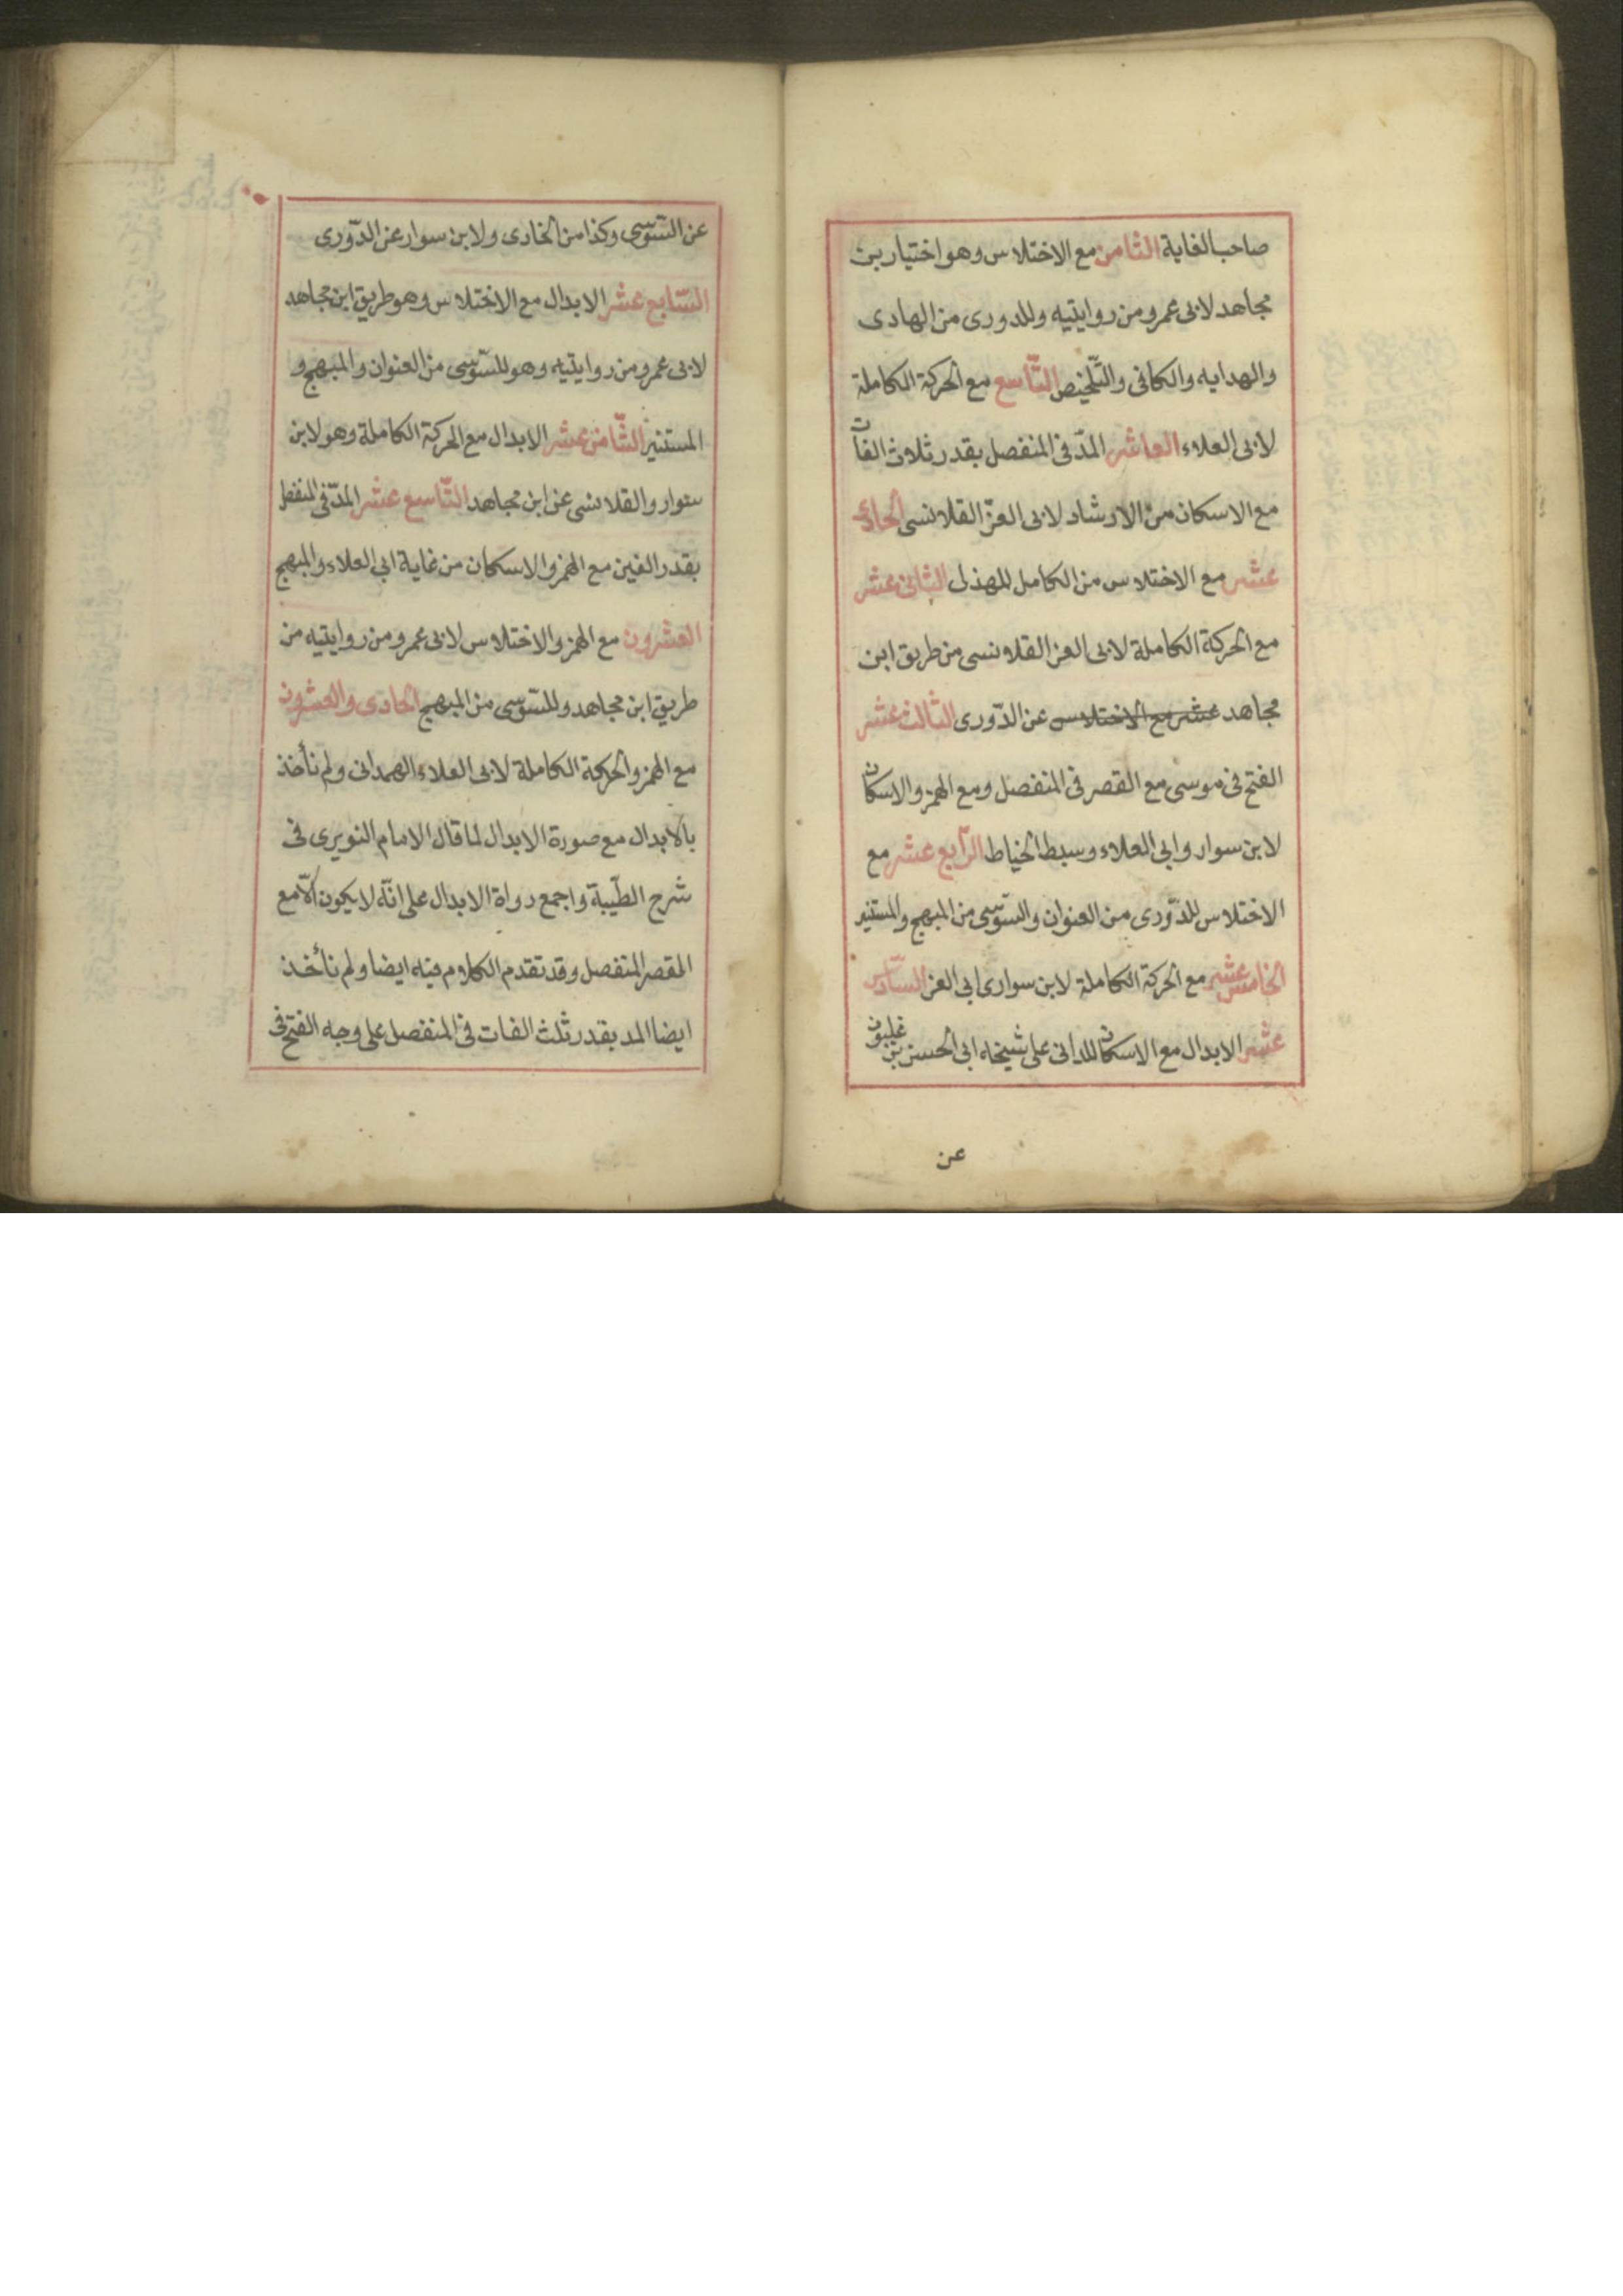 صاحب الغاية الثامن مع الاختلاس وهو اختيار بن
مجاهد لابى عمرو من روايتيه وللدورى من الهادى
والهدايه والكافى والتّلخيص التّاسع مع الحركة الكاملة
لابى العلاء العاشر المدّ فى المنفصل بقدر ثلاث الفات
مع الاسكان من الارشاد لابى العزّ القلانسى الحادى
عشر مع الاختلاس من الكامل للهذلى الثانى عشر
مع الحركة الكاملة لابى العز القلانسى من طريق ابن
مجاهد عشر مع الاختلاس عن الدّورى الثالث عشر
الفتح فى موسى مع القصر فى المنفصل ومع الهمز والاسكان
لابن سوار وابى العلاء وسبط الخياط الرّابع عشر مع
الاختلاس للدّورى من العنوان والسّوسى من المبهج والمستنير
الخامس عشر مع الحركة الكاملة لابن سوارى ابى العز السّادس
عشر الابدال مع الاسكان للدانى على شيخه ابى الحسن بن غلبون
عن
عن السّوسى وكذا من الخادى ولابن سوار عن الدّورى
السّابع عشر الابدال مع الاختلاس وهو طريق ابن مجاهد
لابى عمرو من روايتيه وهو للسّوسى من العنوان والمبهج و
المستنير الثّامن عشر الابدال مع الحركة الكاملة وهو لابن
سوار والقلانسى عن ابن مجاهد التّاسع عشر المدّ فى المنفصل
بقدر الفين مع الهمز والاسكان من غاية ابى العلاء والمبهج
العشرون مع الهمز والاختلاس لابى عمرو من روايتيه من
طريق ابن مجاهد وللسّوسى من المبهج الحادى والعشرون
مع الهمز والحركة الكاملة لابى العلاء الهمدانى ولم نأخذ
بالابدال مع صورة الابدال لما قال الامام النويرى فى
شرح الطّيبة واجمع رواة الابدال على انّه لا يكون الّا مع
القصر المنفصل وقد تقدم الكلام فيه ايضا ولم نأخذ
ايضا المد بقدر ثلث الفات فى المنفصل على وجه الفتح فى